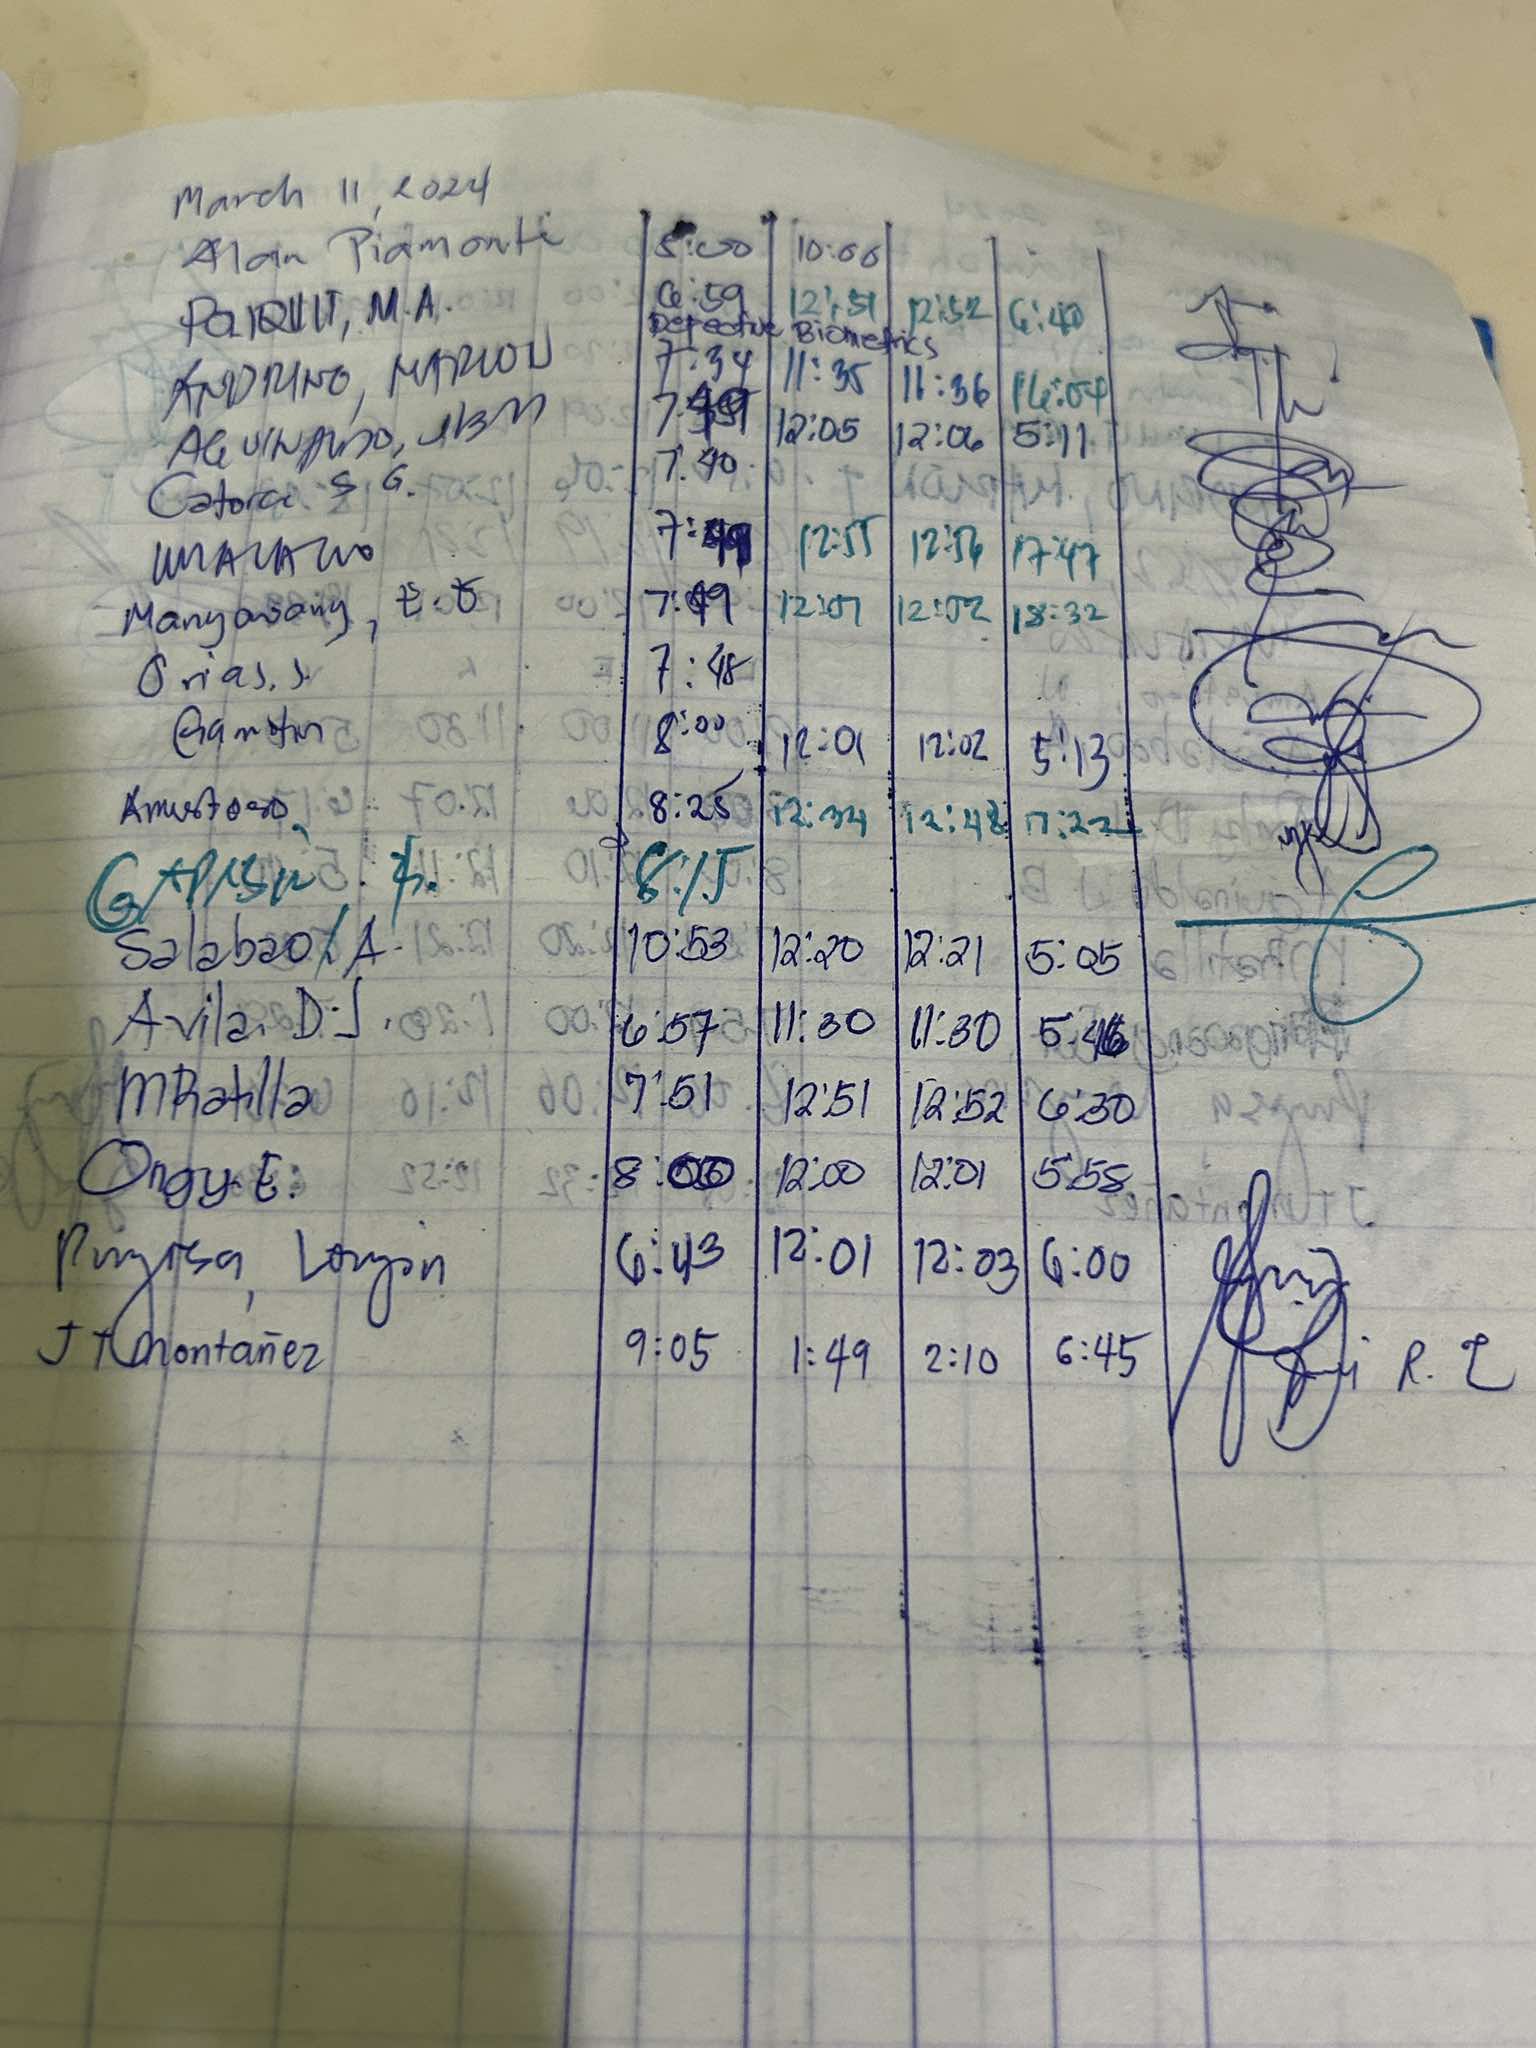 March 11, 2024
Alan Piamonte 5:00 10:00
M.A. 6:59 12:51 12:52 6:40
Defective Biometrics
ANDRINO, MARION 7:34 11:35 11:36 16:04
AGUINALDO, JBM 12:05 12:06 5:11
Catorce S G. 7:40
7:49 12:55 12:56 17:47
Mangaoang, E.O 7:49 12:01 12:02 18:32
Orias, S. 7:48
8:00 12:01 12:02 5:13
8:25 12:34 12:48 17:22
8:15
Salabao, A. 10:53 12:20 12:21 5:05
Avila, D.J. 6:57 11:30 11:30 5:46
MRatilla 7:51 12:51 12:52 6:30
Ongy E. 8:00 12:00 12:01 5:58
6:43 12:01 12:03 6:00
JTMontañez 9:05 1:49 2:10 6:45